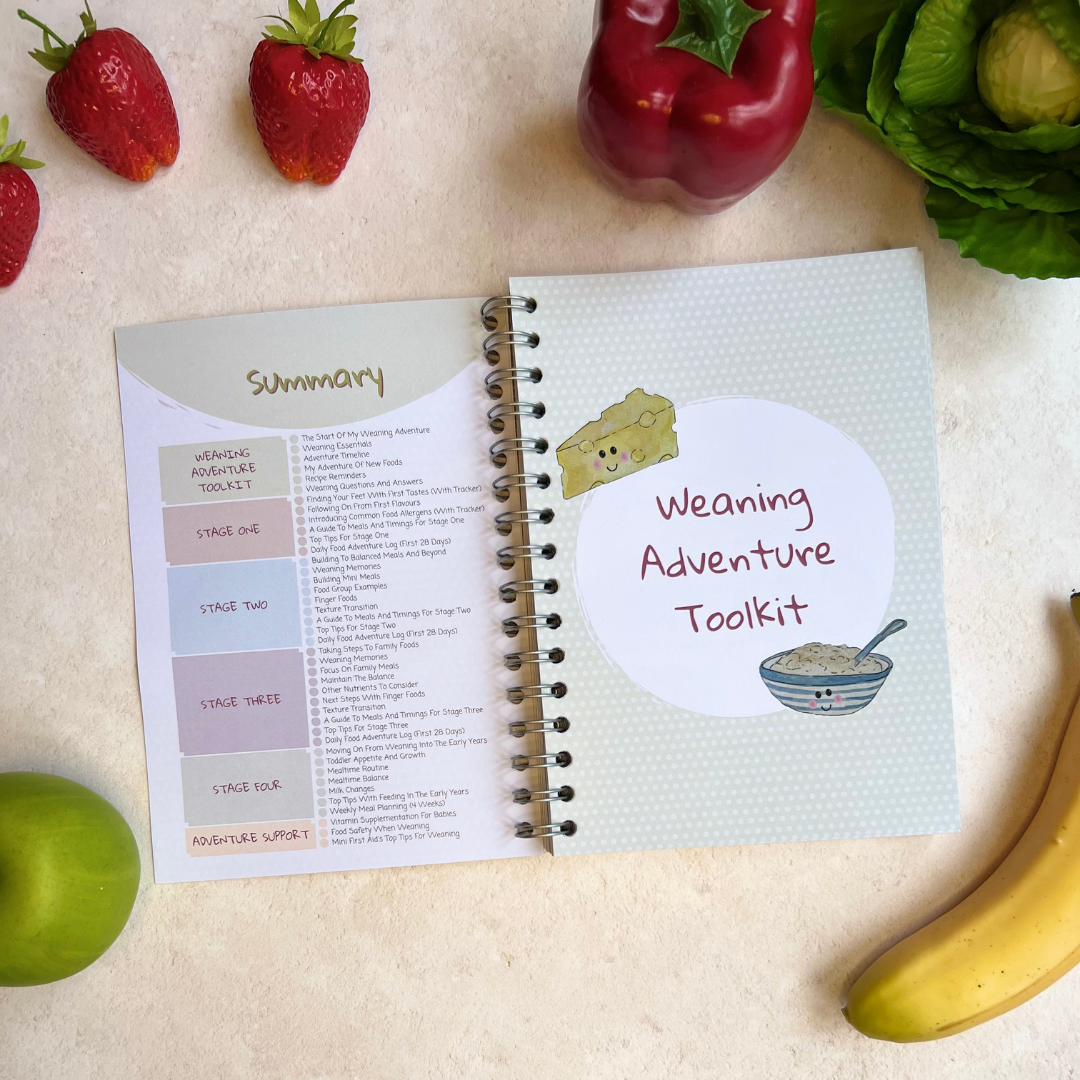 Summary
WEANING
ADVENTURE
TOOLKIT
The Start Of My Weaning Adventure
Weaning Essentials
Adventure Timeline
My Adventure Of New Foods
Recipe Reminders
Weaning Questions And Answers
STAGE ONE
Finding Your Feet With First Tastes (With Tracker)
Following On From First Flavours
Introducing Common Food Allergens (With Tracker)
A Guide To Meals And Timings For Stage One
Top Tips For Stage One
Daily Food Adventure Log (First 28 Days)
STAGE TWO
Building To Balanced Meals And Beyond
Weaning Memories
Building Mini Meals
Food Group Examples
Finger Foods
Texture Transition
A Guide To Meals And Timings For Stage Two
Top Tips For Stage Two
Daily Food Adventure Log (First 28 Days)
STAGE THREE
Taking Steps To Family Foods
Weaning Memories
Focus On Family Meals
Maintain The Balance
Other Nutrients To Consider
Next Steps With Finger Foods
Texture Transition
A Guide To Meals And Timings For Stage Three
Top Tips For Stage Three
Daily Food Adventure Log (First 28 Days)
STAGE FOUR
Moving On From Weaning Into The Early Years
Toddler Appetite And Growth
Mealtime Routine
Mealtime Balance
Milk Changes
Top Tips With Feeding In The Early Years
Weekly Meal Planning (4 Weeks)
ADVENTURE SUPPORT
Vitamin Supplementation For Babies
Food Safety When Weaning
Mini First Aid's Top Tips For Weaning
Weaning
Adventure
Toolkit